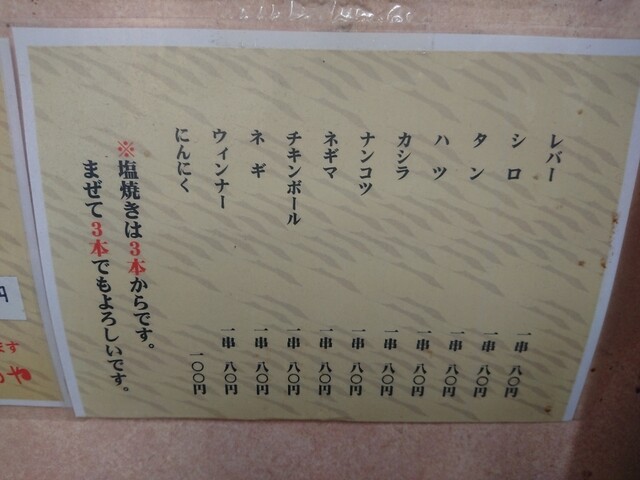 レバー 一串 八〇円
シロ 一串 八〇円
タン 一串 八〇円
ハツ 一串 八〇円
カシラ 一串 八〇円
ナンコツ 一串 八〇円
ネギマ 一串 八〇円
チキンボール 一串 八〇円
ネギ 一串 八〇円
ウィンナー 一串 八〇円
にんにく 一〇〇円
※塩焼きは3本からです。
まぜて3本でもよろしいです。
円
ます
や